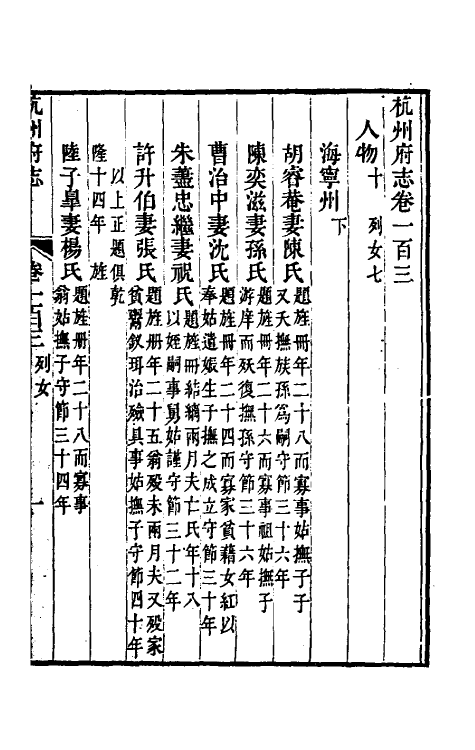 杭州府志卷一百三
人物十 列女七
海寧州下
胡睿菴妻陳氏題旌冊年二十八而寡事姑撫子子
又夭撫族孫爲嗣守節三十六年
陳奕滋妻孫氏題旌冊年二十六而寡事祖姑撫子
游庠而殀復撫孫守節三十六年
曹治中妻沈氏題旌冊年二十四而寡家貧藉女紅以
奉姑遺娠生子撫之成立守節三十年
朱藎忠繼妻祝氏題旌冊結縭兩月夫亡氏年十八
以姪嗣事舅姑謹守節三十二年
許升伯妻張氏題旌冊年二十五翁歿未兩月夫又歿家
貧鬻釵珥治殮具事姑撫子守節四十年
以上正題俱乾
隆十四年 旌
陸子臯妻楊氏題旌冊年二十八而寡事
翁姑撫子守節三十四年
杭州府志 卷一百三 列女七 一